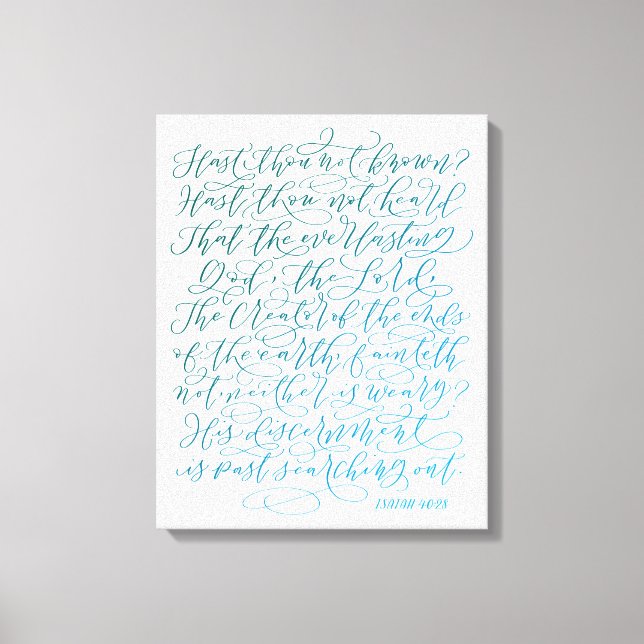 Hast thou not known?
Hast thou not heard
That the everlasting
God, the Lord,
The Creator of the ends
of the earth, fainteth
not, neither is weary?
His discernment
is past searching out.
ISAIAH 40:28